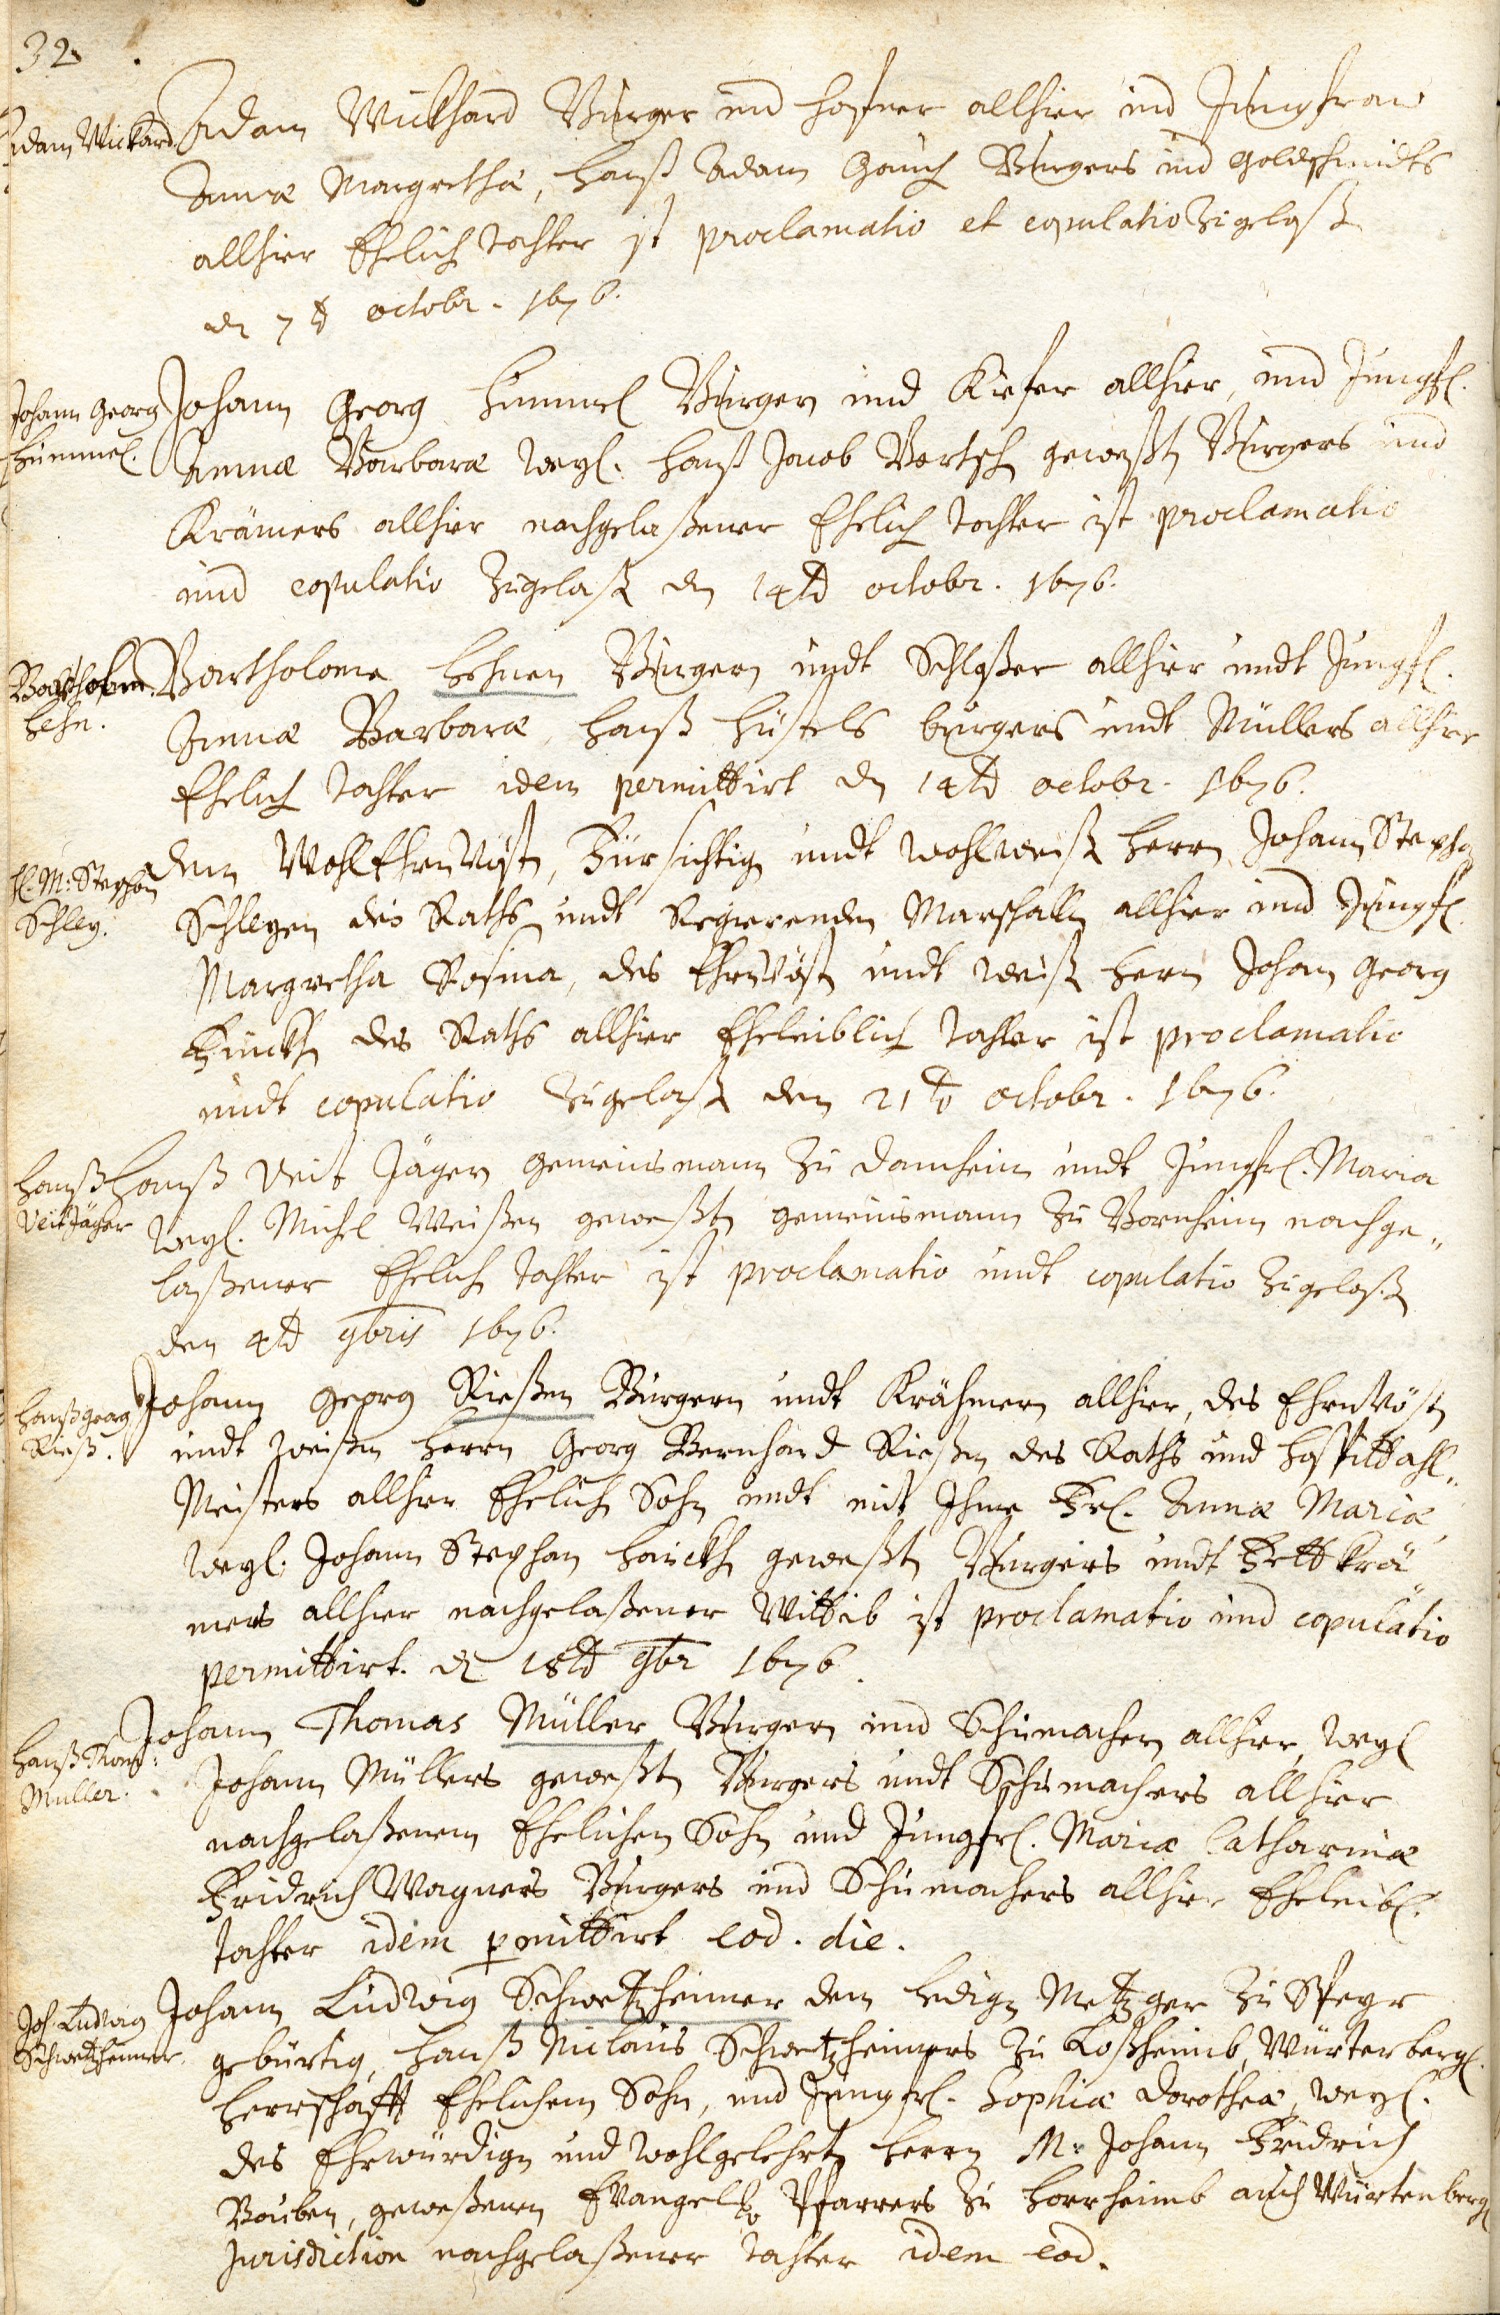 32.
Adam Wickard.
Adam Wickhard Burger und Hafner allhier und Jungfraw
Annæ Margrethæ, Hanß Adam Gauch Burgers und Goldschmidts
allhier Ehelich Tochter ist proclamatio et copulatio Zugelaßen
den 7t octobr. 1676.
Johann Georg
Hümmel.
Johann Georg Hümmel Burgern und Kiefer allhier, und Jungfl.
Annæ Barbaræ Weyl. Hanß Jacob Bartsch geweßten Burgers und
Krämers allhier nachgelaßener Ehelich Tochter ist proclamatio
und copulatio Zugelaßen den 14td octobr. 1676.
Bartholom.
Hehn.
Bartholome Hehnen Burgern undt Schloßer allhier undt Jungfl.
Annæ Barbaræ, Hanß Hüstels burgers undt Müllers allhier
Ehelich Tochter idem permittirt den 14td octobr. 1676.
H. M: Stephan
Schley.
dem WohlEhrnVöst, Fürsichtig undt wohlweisen Herrn Johann Stephan
Schleyen des Raths undt Regierenden Marschalln allhier und Jungfl.
Margretha Rosina, des EhrnVösten undt Weisen Herrn Johan Georg
Fünckh des Raths allhier Eheleiblich Tochter ist proclamatio
undt copulatio Zugelaßen den 21td octobr. 1676.
Hanß
Veit Jäger
Hanß Veit Jägern gemeinsmann Zu Damheim undt Jungfrl. Maria
Weyl. Michel Weißen geweßten gemeinsmann Zu Bornheim nachge„
laßener Ehelich Tochter ist proclamatio undt copulatio Zugelaßen
den 4td 9bris 1676.
Hanß Georg
Rieß.
Johann Georg Rießen Burgern undt Krähmern allhier, des EhrnVösten
undt Weißen Herrn Georg Bernhard Rießen des Raths und Hospittahl„
Meisters allhier Ehelich Sohn undt mit Ihme Frl. Annæ Mariæ,
Weyl. Johann Stephan Hauckh geweßten Burgers undt Fettkrä
mers allhier nachgelaßener Wittib ist proclamatio und copulatio
permittirt. den 18td 9br 1676.
Hanß Thom:
Müller.
Johann Thomas Müller Burgern und Schumachern allhier, Weyl
Johann Müllers geweßten Burgers undt Schumachers allhier
nachgelaßenem Ehelichen Sohn und Jungfrl. Mariæ Catharinæ
Fridrich Wagners Burgers und Schumachers allhier Eheleibl.
Tochter idem pmittirt eod. die.
Joh. Ludwig
Schwetzheimer.
Johann Ludwig Schwetzheimer dem Ledigen Metzger Zu Speyr
gebürtig, Hanß Niclaus Schwetzheimers Zu Roßheimb, Würterbergl.
Herrschafft Ehelichem Sohn, und Jungfrl. Sophiæ Dorotheæ, Weyl.
des Ehrwürdigen und Wohlgelehrten Herrn M: Johann Fridrich
Bauben, geweßenen Evangel. Pfarrers Zu Horrheimb auch Würtenbergl
Jurisdiction nachgelaßener Tochter idem eod.